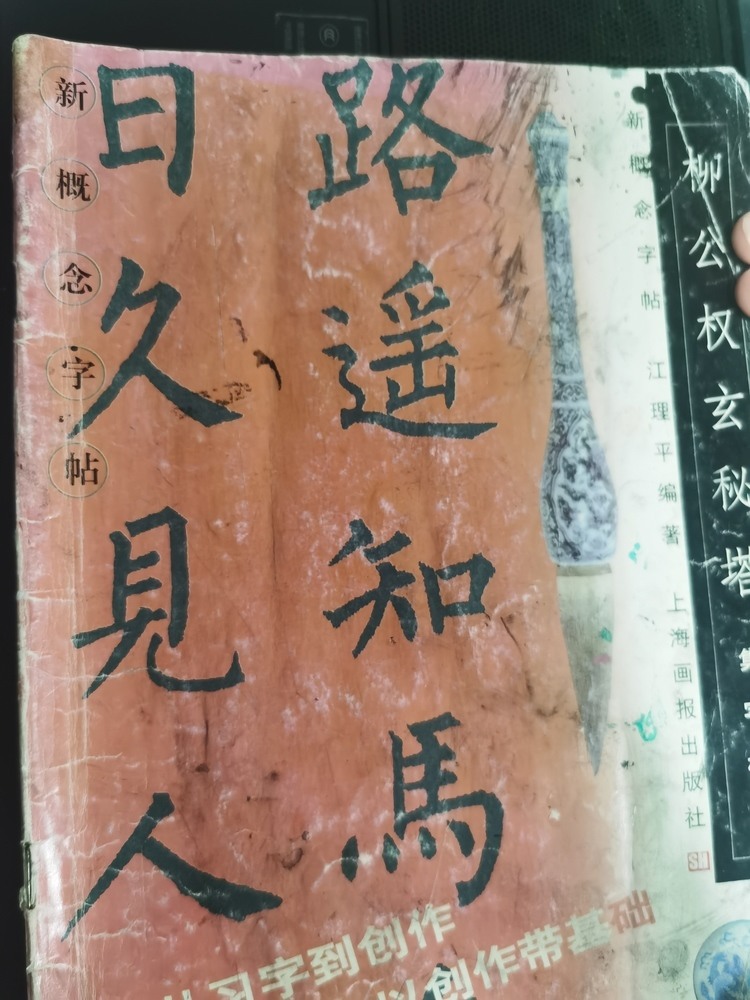 柳公权玄秘塔
新概念字帖 江理平编著 上海画报出版社
路遥知馬
日久見人
新概念字帖
从习字到创作
以创作带基础